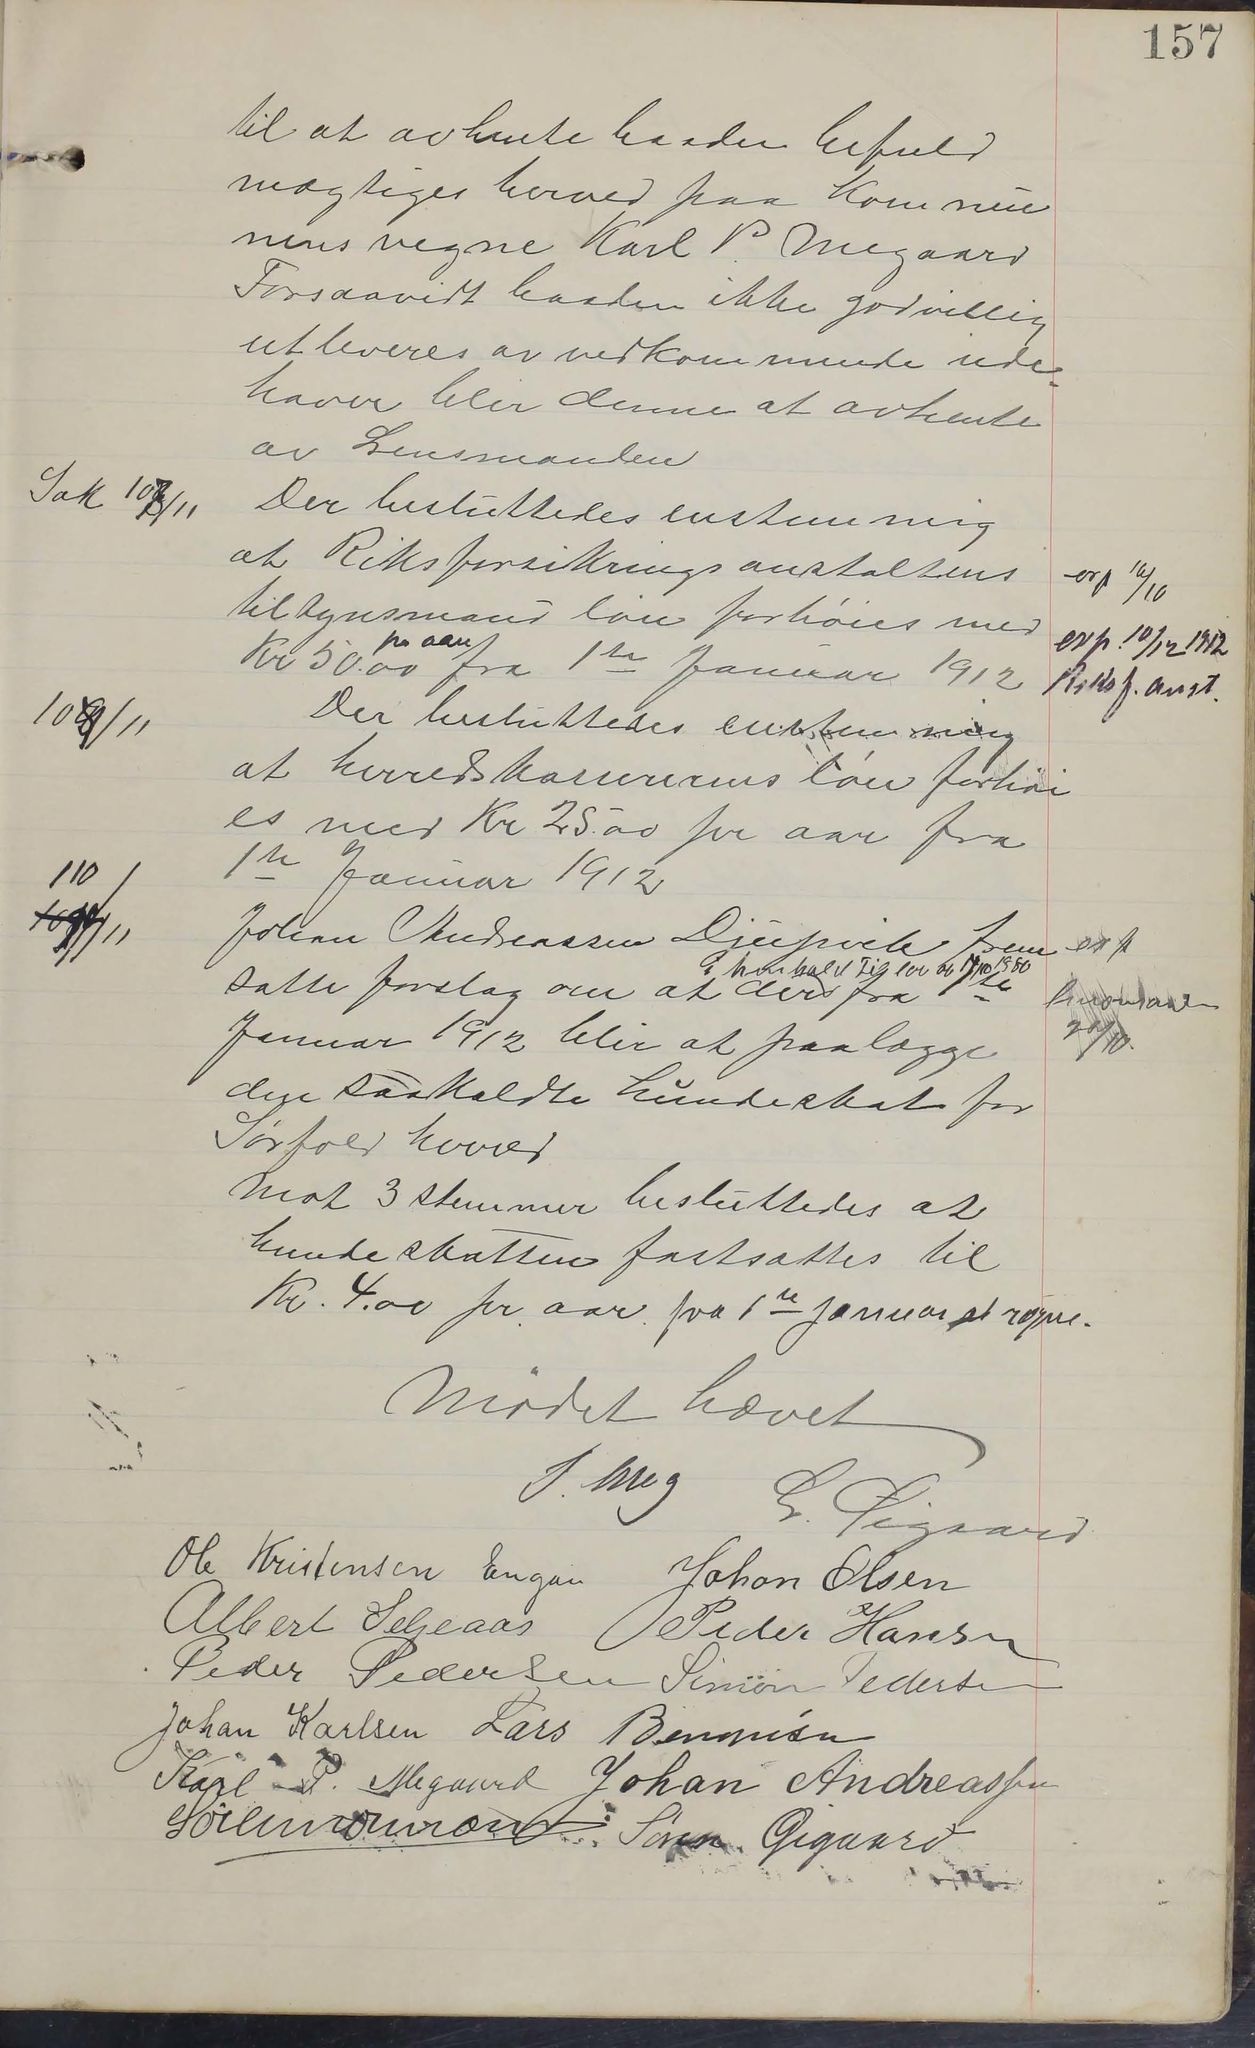 157
til at avhente baaden befuld
mægtiges herved paa Kommu
nens vegne Karl P. Megaard
Forsaavidt baaden ikke godvillig
utleveres av vedkommende inde-
haver blir denne at avhente
av Lensmanden
Sak 108/11 Der besluttedes enstemmig
at Riksforsikringsanstaltens exp 16/10
tilsynsmand løn forhøies med exp. 10/12 1912
pr aar
Kr 50.00 fra 1ste Januar 1912 Riksf. anst.
109/11 Der besluttedes enstemmig
at herredskassererens løn forhøi
es med Kr 25.00 pr aar fra
1ste Januar 1912
110/11 Johan Andreassen Djupvik frem exp
i henhold til lov av
satte forslag om at der fra 1ste lensmand
Januar 1912 blir at paalægge
den saakaldte hundeskat for
Sørfold herred
Mot 3 stemmer besluttedes at
hundeskatten fastsattes til
Kr. 4.00 pr. aar fra 1ste januar at regne.
Mødet hævet
S. Meg E. Øigaard
Ole Kristensen Engan Johan Olsen
Albert Seljeaas Peder Hansen
Peder Pedersen Simon Pedersen
Johan Karlsen Lars
Karl P. Megaard Johan Andreassen
Søren Øigaard